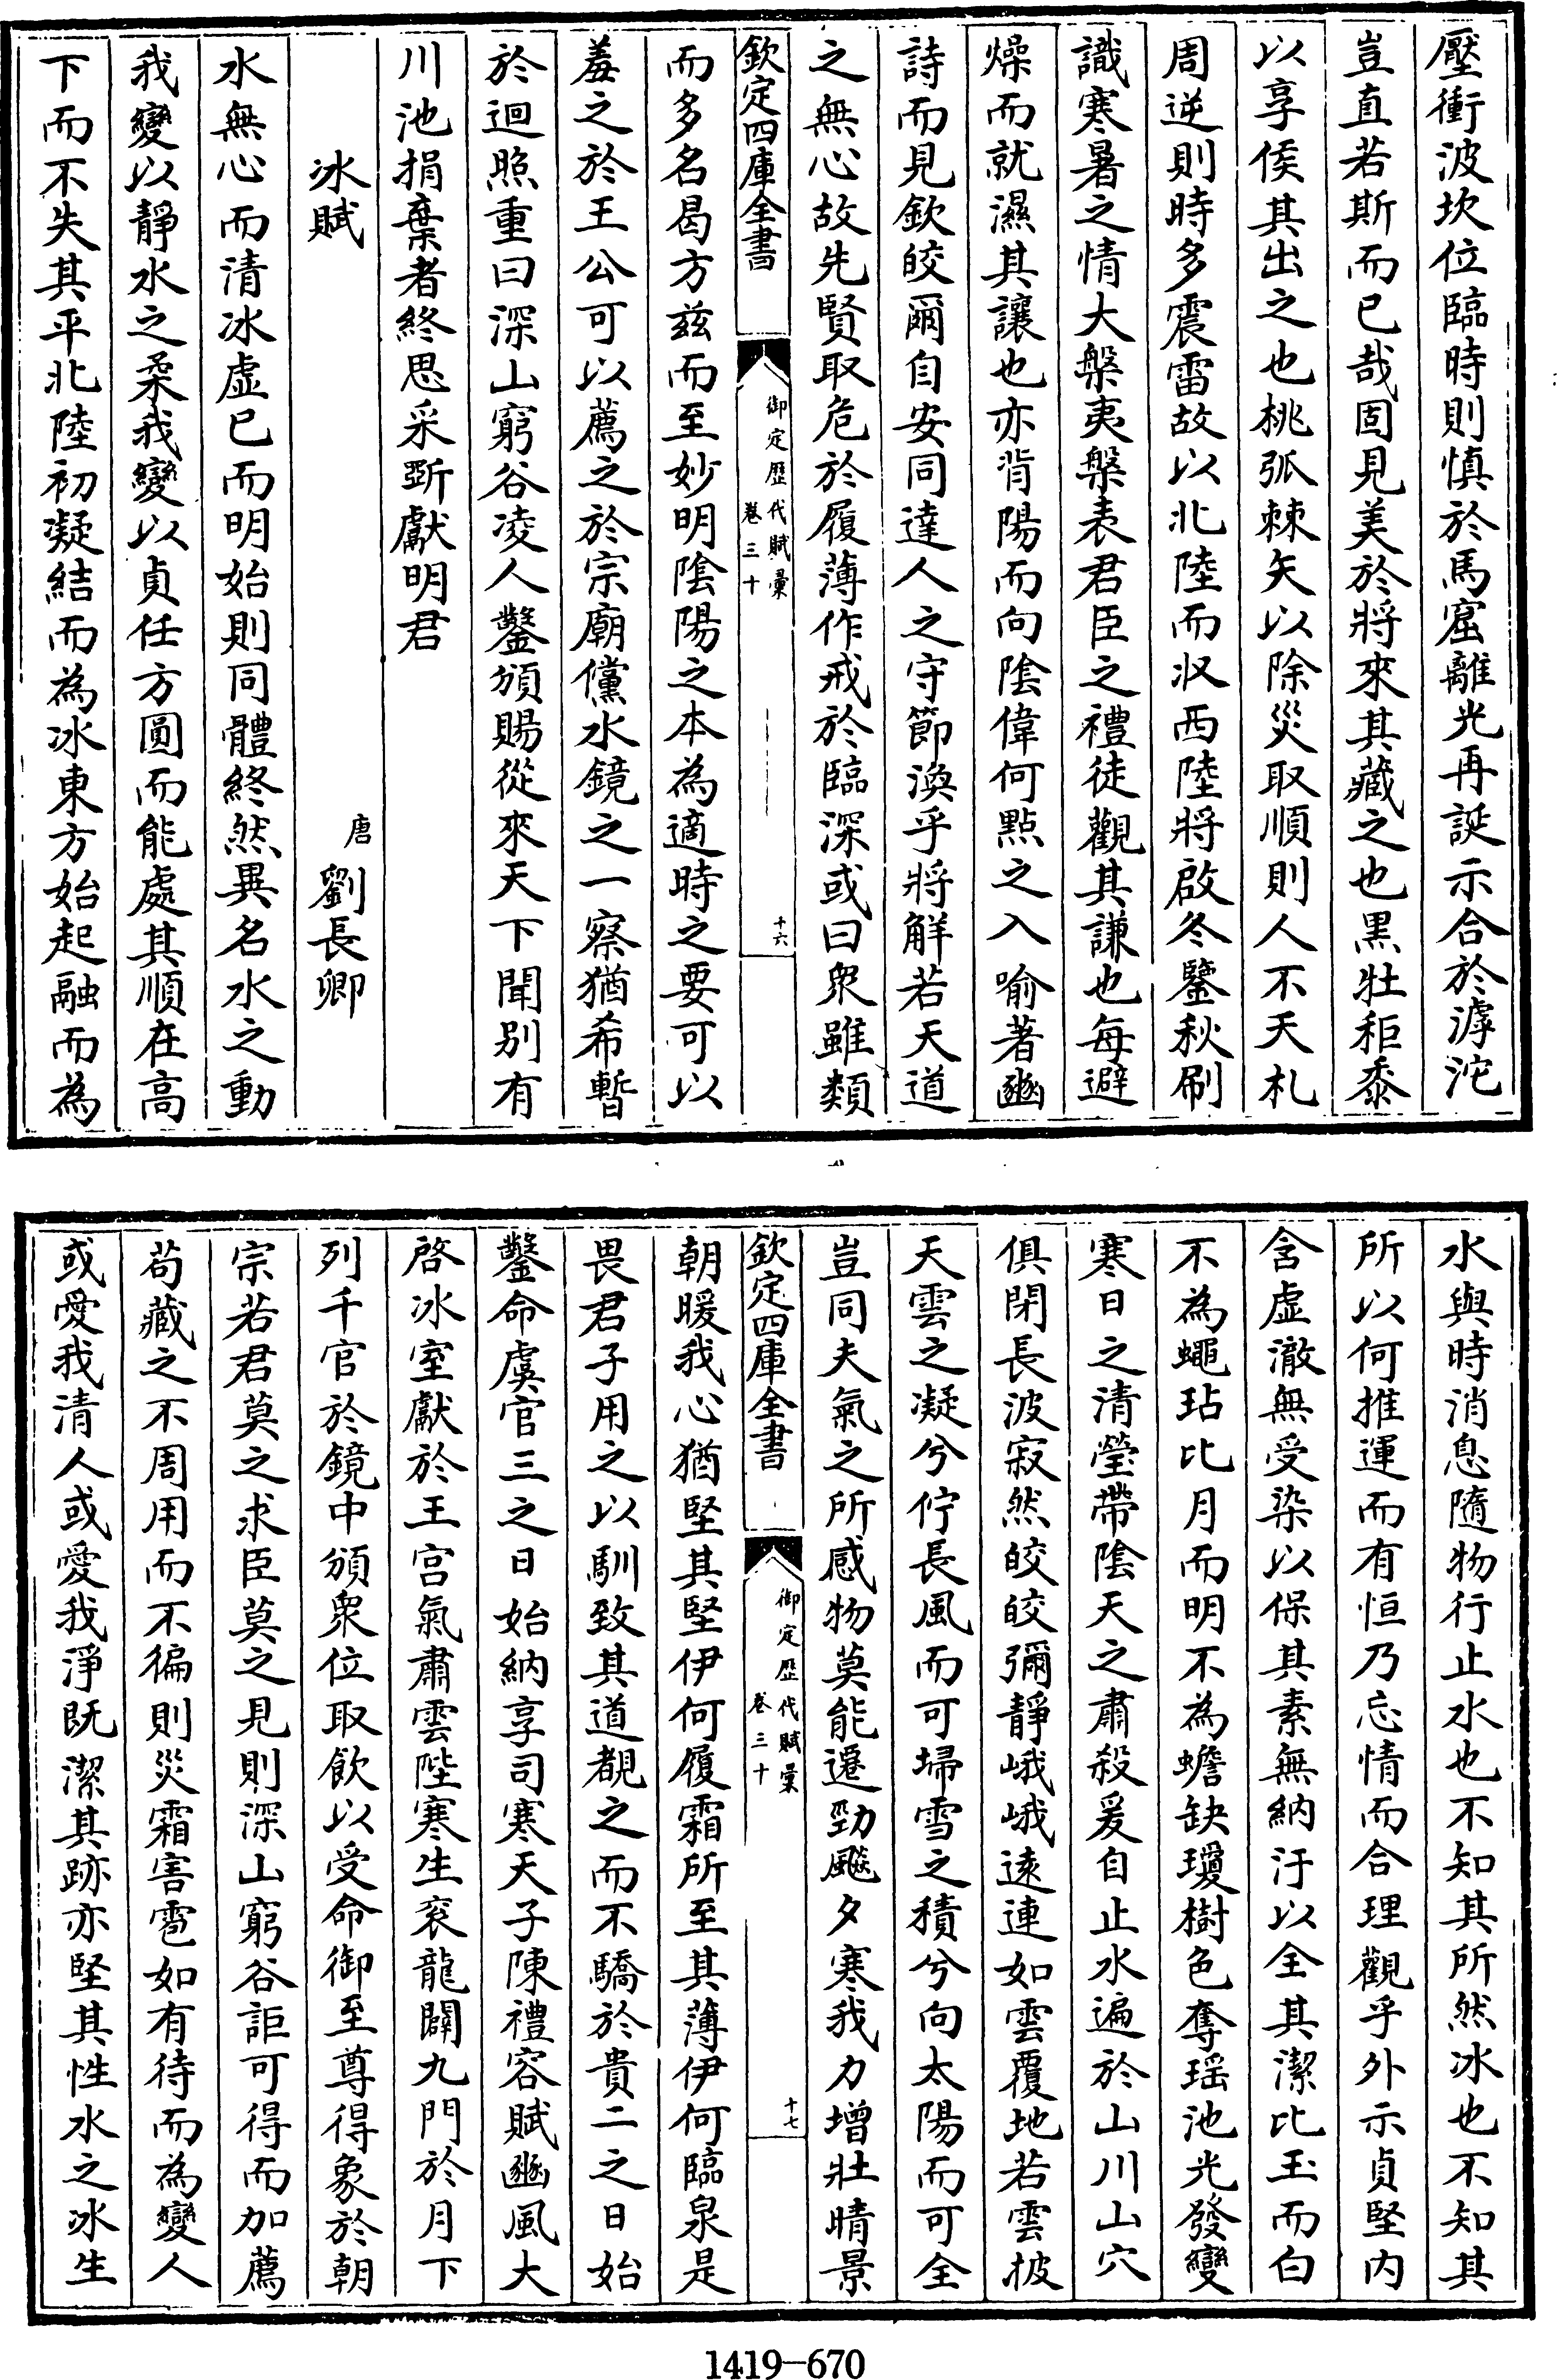 壓衝波坎位臨時則慎於馬窟離光再誕示合於滹沱
豈直若斯而已哉固見美於將來其藏之也黒牡秬黍
以享侯其出之也桃弧棘矢以除災取順則人不夭札
周逆則時多震雷故以北陸而収西陸將啟冬鑒秋刷
識寒暑之情大槃夷槃表君臣之禮徒觀其謙也每避
燥而就濕其讓也亦背陽而向陰偉何點之入喻著豳
詩而見欽皎爾自安同達人之守節渙乎將解若天道
之無心故先賢取危於履薄作戒於臨深或曰衆雖類
欽定四庫全書
御定歴代賦彚
卷三十
十六
而多名曷方兹而至妙明陰陽之本為適時之要可以
羞之於王公可以薦之於宗廟儻水鏡之一察猶希暫
於迴照重曰深山窮谷凌人鑿頒賜從來天下聞别有
川池捐棄者終思采斲獻明君
冰賦
唐劉長卿
水無心而清冰虚已而明始則同體終然異名水之動
我變以靜水之柔我變以貞任方圓而能處其順在高
下而不失其平北陸初凝結而為冰東方始起融而為
水與時消息隨物行止水也不知其所然冰也不知其
所以何推運而有恒乃忘情而合理觀乎外示貞堅内
含虚澈無受染以保其素無納汙以全其潔比玉而白
不為蠅玷比月而明不為蟾缺瓊樹色奪瑶池光發變
寒日之清瑩帶陰天之肅殺爰自止水遍於山川山穴
俱閉長波寂然皎皎彌靜峨峨逺連如雲覆地若雲披
天雲之凝兮佇長風而可埽雪之積兮向太陽而可全
豈同夫氣之所感物莫能遷勁飈夕寒我力增壯晴景
欽定四庫全書
御定歴代賦彚
卷三十
十七
朝暖我心猶堅其堅伊何履霜所至其薄伊何臨泉是
畏君子用之以馴致其道覩之而不驕於貴二之日始
鑿命虞官三之日始納享司寒天子陳禮容賦豳風大
啓冰室獻於王宫氣肅雲陛寒生衮龍闢九門於月下
列千官於鏡中頒衆位取飲以受命御至尊得象於朝
宗若君莫之求臣莫之見則深山窮谷詎可得而加薦
茍藏之不周用而不徧則災霜害雹如有待而為變人
或愛我清人或愛我淨既潔其跡亦堅其性水之冰生
1419-670